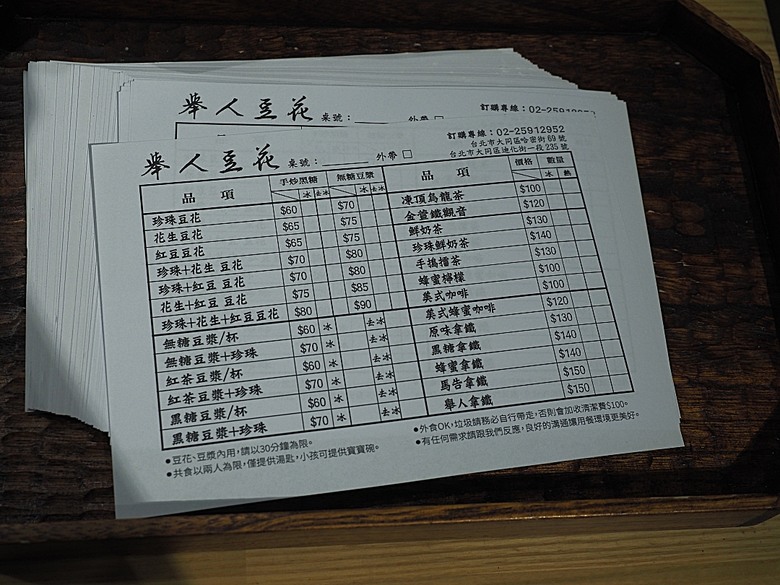 舉人豆花 桌號： 外帶 訂購專線：02-2591
舉人豆花 桌號： 外帶□ 訂購專線：02-25912952
台北市大同區哈密街69號
台北市大同區迪化街一段235號
品項 手炒黑糖 無糖豆漿
冰 去冰 冰 去冰
珍珠豆花 $60 $70
花生豆花 $65 $75
紅豆豆花 $65 $75
珍珠+花生 豆花 $70 $80
珍珠+紅豆 豆花 $70 $80
花生+紅豆 豆花 $75 $85
珍珠+花生+紅豆豆花 $80 $90
無糖豆漿/杯 $60 冰 去冰
無糖豆漿+珍珠 $70 冰 去冰
紅茶豆漿/杯 $60 冰 去冰
紅茶豆漿+珍珠 $70 冰 去冰
黑糖豆漿/杯 $60 冰
黑糖豆漿+珍珠 $70 冰
品項 價格 數量
冰 熱
凍頂烏龍茶 $100
金萱鐵觀音 $120
鮮奶茶 $130
珍珠鮮奶茶 $140
手搗擂茶 $130
蜂蜜檸檬 $100
英式咖啡 $100
英式蜂蜜咖啡 $120
原味拿鐵 $130
黑糖拿鐵 $140
蜂蜜拿鐵 $140
馬告拿鐵 $150
舉人拿鐵 $150
●豆花、豆漿內用，請以30分鐘為限。
●共食以兩人為限，僅提供湯匙，小孩可提供寶寶碗。
●外食OK，垃圾請務必自行帶走，否則會加收清潔費$100。
●有任何需求請跟我們反應，良好的溝通讓用餐環境更美好。